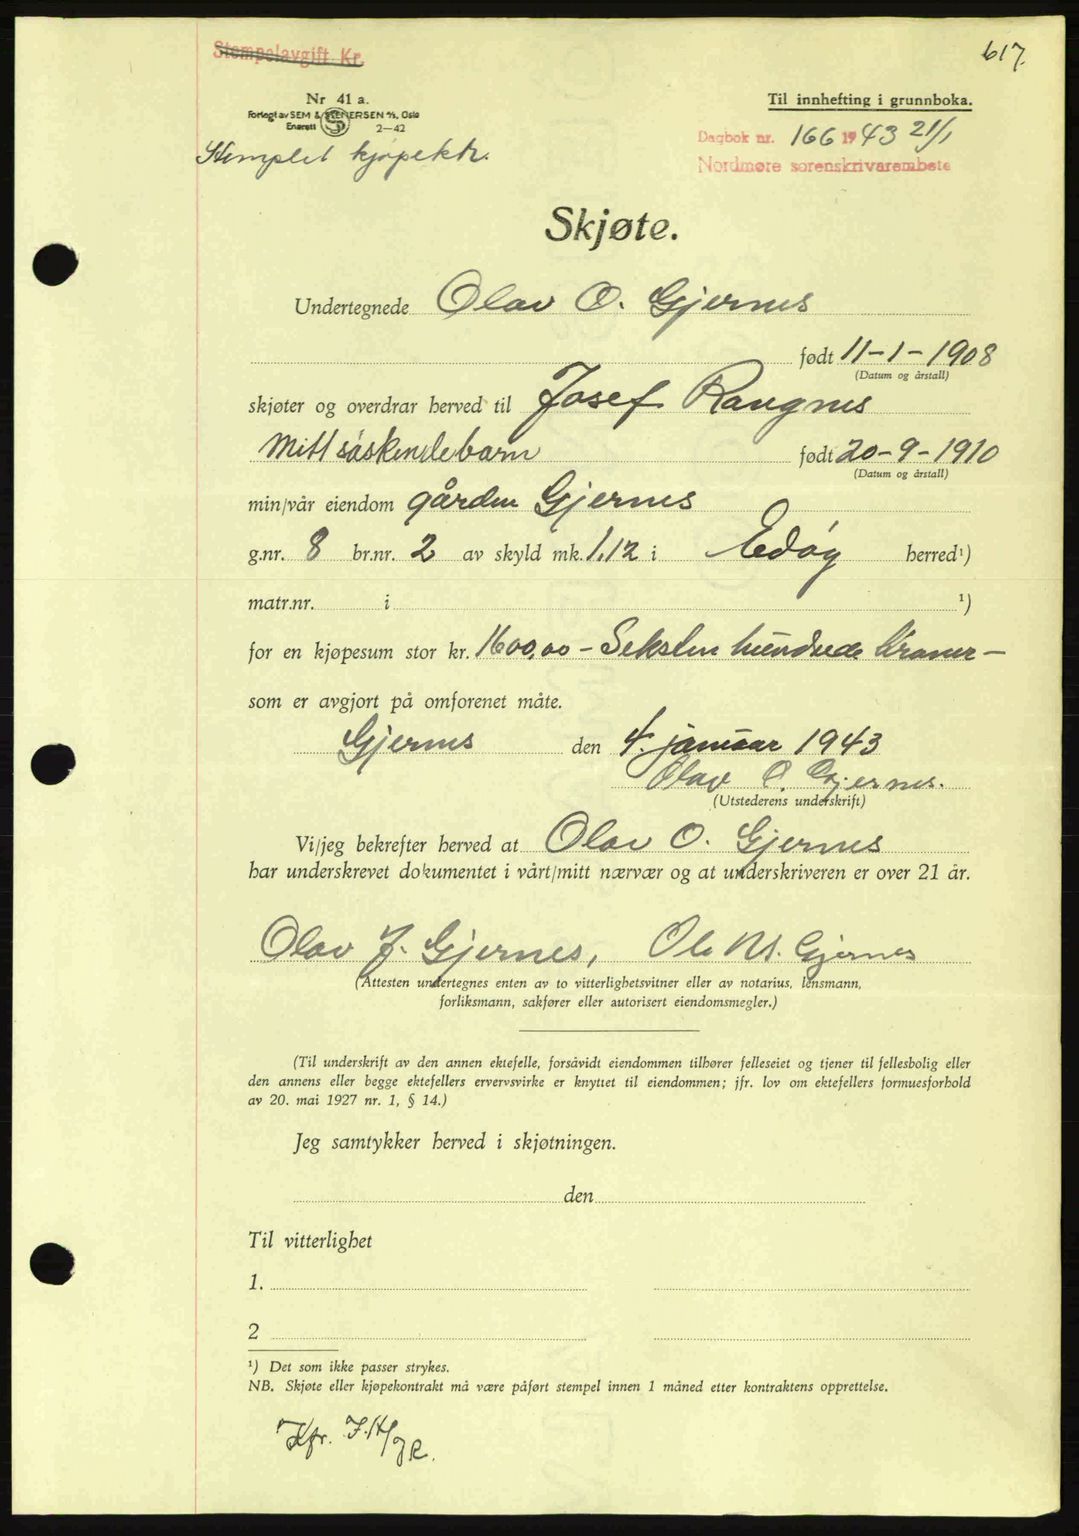 Stempelavgift Kr.
617.
Nr 41 a.
Forlagt av SEM & STENERSEN A/S, Oslo
Enerett 2-42
Til innhefting i grunnboka.
Stemplet kjøpektr.
Dagbok nr. 166 1943 21/1
Nordmøre sorenskrivarembete
Skjøte.
Undertegnede Olav O. Gjernes
født 11-1-1908
(Datum og årstall)
skjøter og overdrar herved til Josef Rangnes
Mitt søskendebarn født 20-9-1910
(Datum og årstall)
min/vår eiendom gården Gjernes
g.nr. 8 br.nr. 2 av skyld mk. 1,12 i Edøy herred¹)
matr.nr. i ¹)
for en kjøpesum stor kr. 1600,00 - Seksten hundrede kroner -
som er avgjort på omforenet måte.
Gjernes den 4. januar 1943
Olav O. Gjernes.
(Utstederens underskrift)
Vi/jeg bekrefter herved at Olav O. Gjernes
har underskrevet dokumentet i vårt/mitt nærvær og at underskriveren er over 21 år.
Olav J. Gjernes, Ole Gjernes
(Attesten undertegnes enten av to vitterlighetsvitner eller av notarius, lensmann,
forliksmann, sakfører eller autorisert eiendomsmegler.)
(Til underskrift av den annen ektefelle, forsåvidt eiendommen tilhører felleseiet og tjener til fellesbolig eller
den annens eller begge ektefellers ervervsvirke er knyttet til eiendommen; jfr. lov om ektefellers formuesforhold
av 20. mai 1927 nr. 1, § 14.)
Jeg samtykker herved i skjøtningen.
den
Til vitterlighet
1.
2
¹) Det som ikke passer strykes.
NB. Skjøte eller kjøpekontrakt må være påført stempel innen 1 måned etter kontraktens opprettelse.
Kfr. J.H/